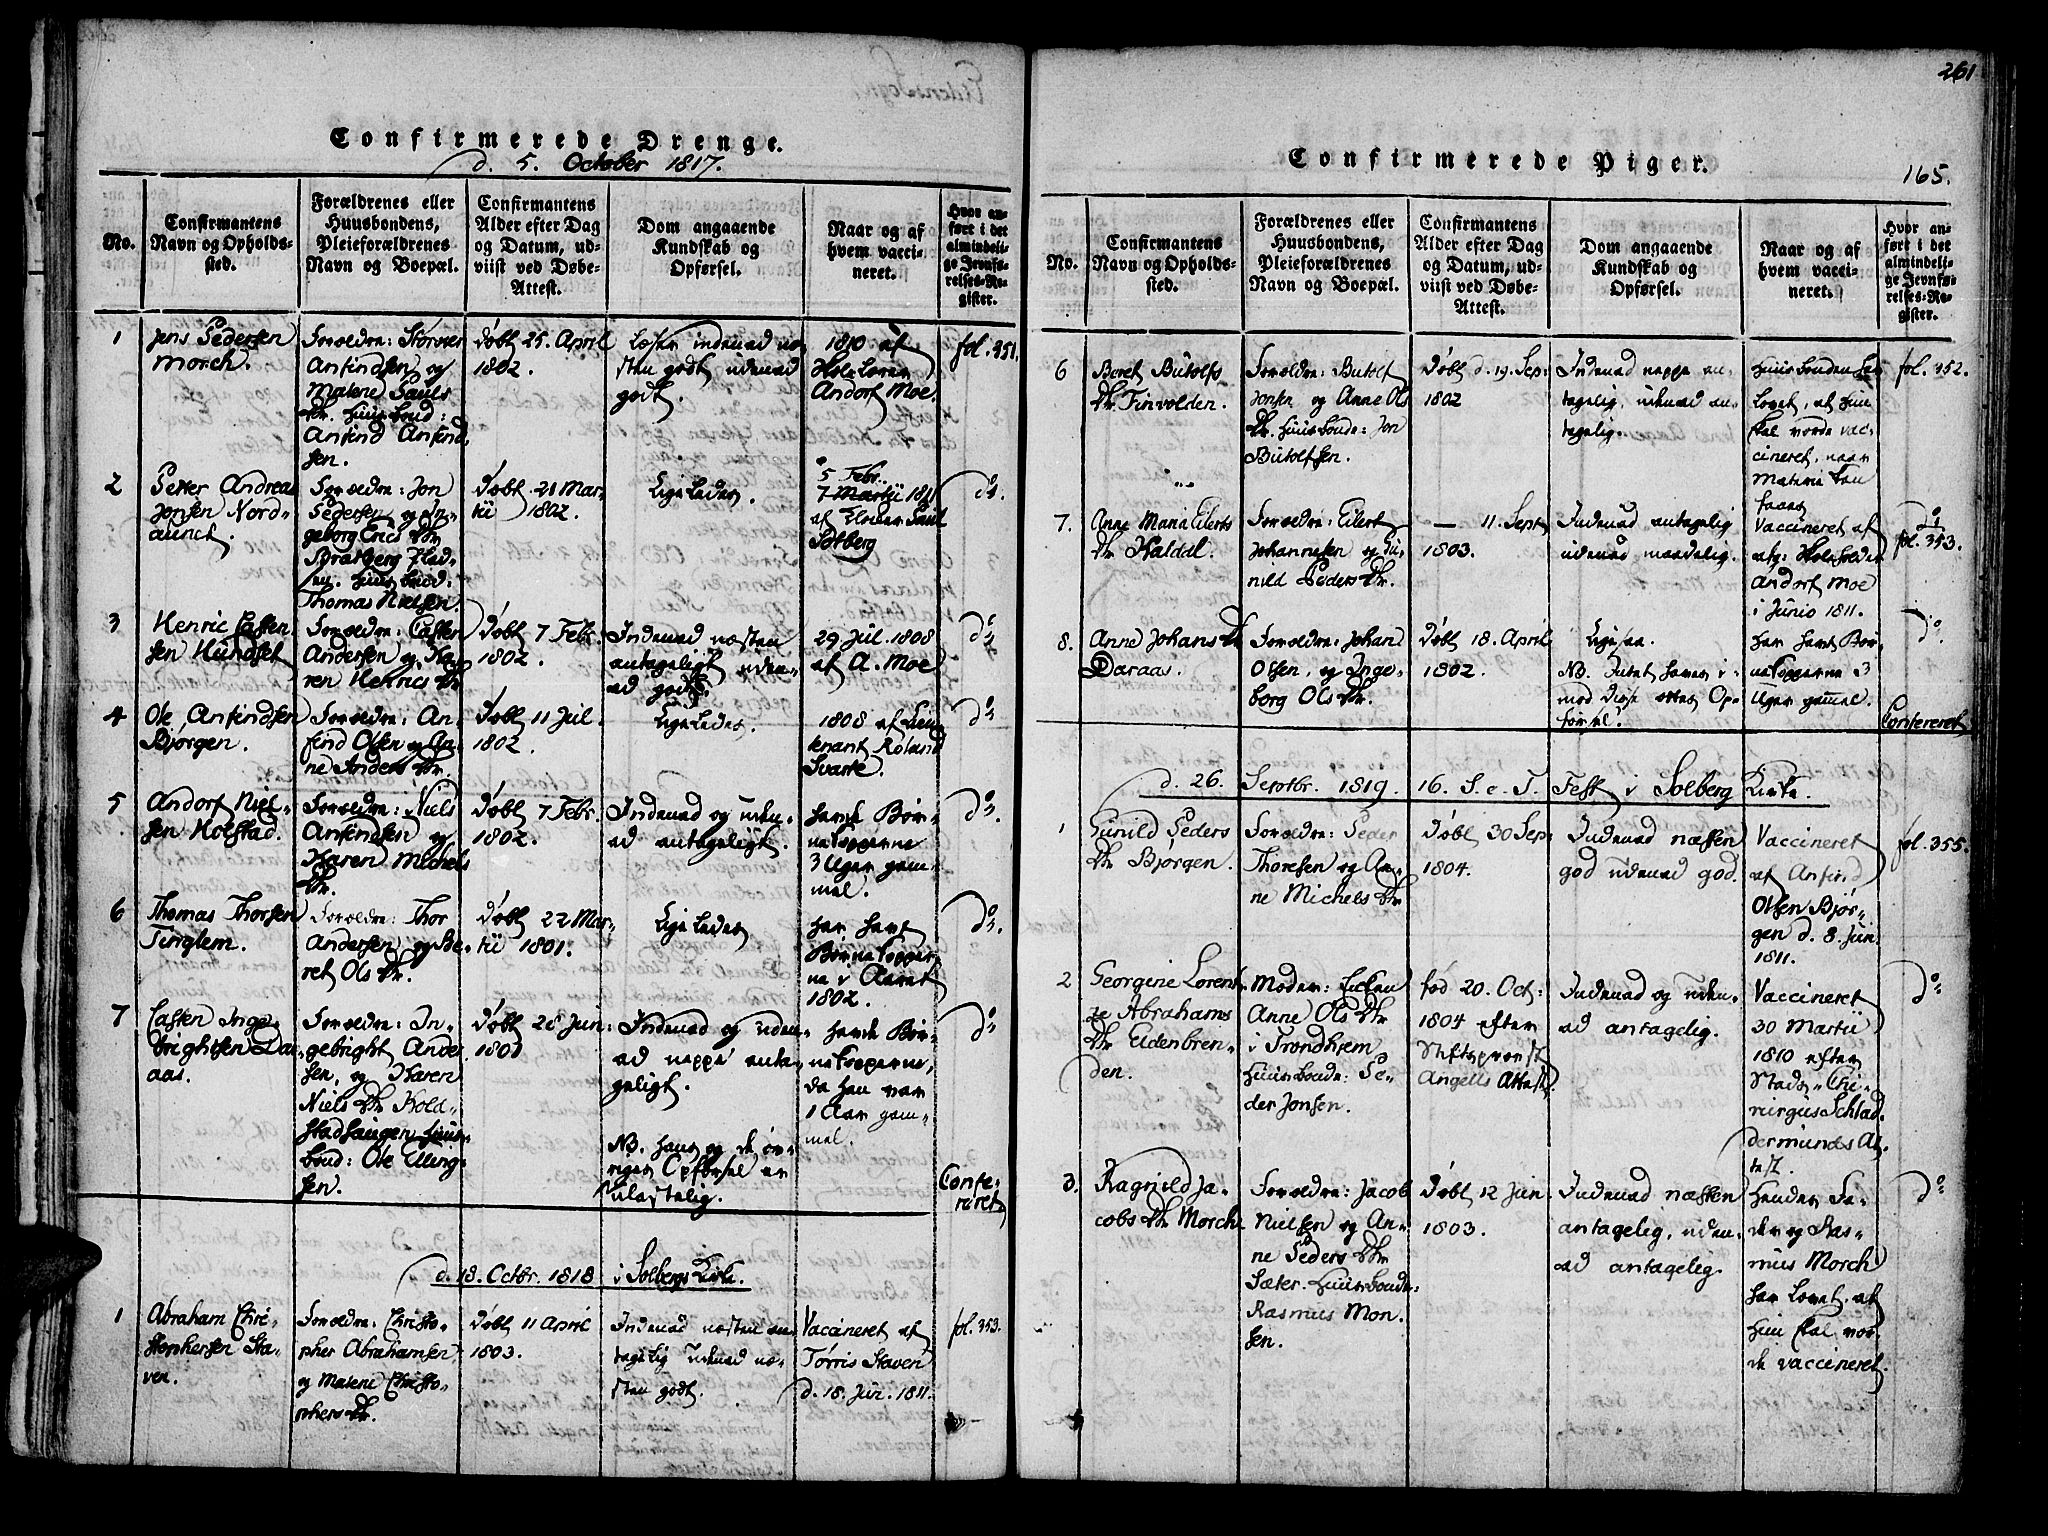 Confirmerede Drenge.
d. 5. October 1817.
No.
Confirmantens
Navn og Opholds-
sted.
Forældrenes eller
Huusbondens,
Pleieforældrenes
Navn og Boepæl.
Confirmantens
Alder efter Dag
og Datum, ud-
viist ved Døbe-
Attest.
Dom angaaende
Kundskab og
Opførsel.
Naar og af
hvem vacci-
neret.
Hvor an-
ført i det
almindeli-
ge Jevnfø-
relses-Re-
gister.
1
Jens Pedersen
Morch.
Forældre:
Anfindsen og
Malene Pauls
Dr. Huusbond:
Anfind Anfind
sen.
Døbt 25. April
1802.
Læser indenad næ-
sten godt udenad
godt.
1810 af
Andorf Moe.
fol. 351.
2
Petter Andreas
Jonsen Nord-
aunet.
Forældre: Jon
Pedersen og In-
geborg Erics Dr
Huusbond:
Thomas Nielsen.
Døbt 21 Mar-
tii 1802.
Ligeledes.
5 Febr.
7 Martii 1811
af
Solberg
do.
3
Henric Casten
sen Hundset
Forældre: Casten
Andersen og Ka-
ren Henrics Dr
Døbt 7 Febr.
1802.
Indenad næsten
antageligt uden-
ad godt.
29 Jul. 1808
af A. Moe
do
4
Ole Anfindsen
Bjørgen.
Forældre: An-
find Olsen og An-
ne Anders Dr.
Døbt 11 Jul.
1802.
Ligeledes.
1808 af Leu-
tenant Roland
Svarte.
do
5
Andorf Niel-
sen Holstad.
Forældre: Niels
Anfindsen og
Karen Michels
Dr.
Døbt 7 Febr.
1802.
Indenad og uden-
ad antageligt.
havde Bør-
nekopperne
3 Uger gam-
mel.
do.
6
Thomas Thorsen
Tinglem.
Forældre: Thor
Andersen og Be-
ret Ols Dr.
Døbt 22 Mar-
tii 1801.
Ligeledes
har havt
Børnekopper-
ne i Aaret
1802.
do.
7
Casten Inge-
brightsen Dar-
aas.
Forældre: In-
gebright Ander
sen, og Karen
Niels Dr Hold-
stadhaugen Huus-
bond: Ole Elling-
sen.
Døbt 28 Jun:
1801
Indenad og uden-
ad neppe anta-
geligt.
NB. hans og de øv-
riges Opførsel er
ulastelig.
havde Bør-
nekopperne,
da han var
1 Aar gam-
mel.
do
Confe-
reret
d. 18. Octbr. 1818 i Solbergs Kirke.
1
Abraham Chri-
stophersen Sta-
ven.
Forældre: Christo-
pher Abrahamsen
og Malene Christo-
phers Dr.
Døbt 11 April
1803.
Indenad næsten an-
tagelig udenad næ-
sten godt.
Vaccineret af
Tørris Staven
d. 18. Jun. 1811.
fol. 353.
261
Confirmerede Piger.
165.
No.
Confirmantens
Navn og Opholds-
sted.
Forældrenes eller
Huusbondens,
Pleieforældrenes
Navn og Boepæl.
Confirmantens
Alder efter Dag
og Datum, ud-
viist ved Døbe-
Attest.
Dom angaaende
Kundskab og
Opførsel.
Naar og af
hvem vacci-
neret.
Hvor an-
ført i det
almindeli-
ge Jevnfø-
relses-Re-
gister.
6
Beret Butolfs
Dr. Tinvolden.
Forældre: Butolf
Jonsen og Anne Ols
Dr. Huusbonde: Jon
Butolfsen.
Døbt d. 19. Sep:
1802
Indenad neppe an-
tagelig, udenad an-
tagelig.
Huusbonden har
lovet, at hun
skal vorde vac-
cineret, naar
Materie kan
faaes
fol. 352.
7.
Anne Maria Eilerts
Dr Haldal.
Forældre: Eilert
Johannesen og Gu-
nild Peders Dr.
— 11. Sept
1803.
Indenad antagelig
udenad maadelig.
Vaccineret af
afg:
Andorf Moe
i Junio 1811.
fol. 353.
8.
Anne Johans Dr
Daraas.
Forældre: Johan
Olsen, og Inge-
borg Ols Dr.
Døbt 18. April
1802.
Ligesaa.
NB. Intet haves i-
mod disse ottes Op-
førsel.
har havt Bør-
nekopperne 3
Uger gammel.
do.
Confereret
d. 26. Septbr. 1819. 16. S. e. T. Fest i Solberg Kirke.
1
Gunild Peders
Dr Bjørgen.
Forældre: Peder
Thoresen og An-
ne Michels Dr
Døbt 30 Sep:
1804.
Indenad næsten
god udenad god.
Vaccineret
af Anfind
Olsen Bjør-
gen d. 8. Jun.
1811.
fol. 355.
2
Georgine Lorent-
ze Abrahams
Dr Eldenbren-
den.
Moder: Enken
Anne Ols Dr
i Trondhiem
Huusbonde: Pe-
der Jonsen.
fød 20. Oct:
1804 efter
Stiftsprovst
Angells Attest.
Indenad og uden-
ad antagelig.
Vaccineret
30 Martii
1810 efter
Stads-Chi-
rurgus Schlad
dermunds At-
test.
do
3.
Ragnild Ja-
cobs Dr Morch
Forældre: Jacob
Nielsen og An-
ne Peders Dr
Sæter. Huusbonde:
Rasmus Mon-
sen.
Døbt 12 Jun.
1803.
Indenad næsten
antagelig, uden-
ad antagelig.
Hendes Fa-
der og Ras-
mus Morch
har lovet, at
hun skal vor-
de vaccineret.
do